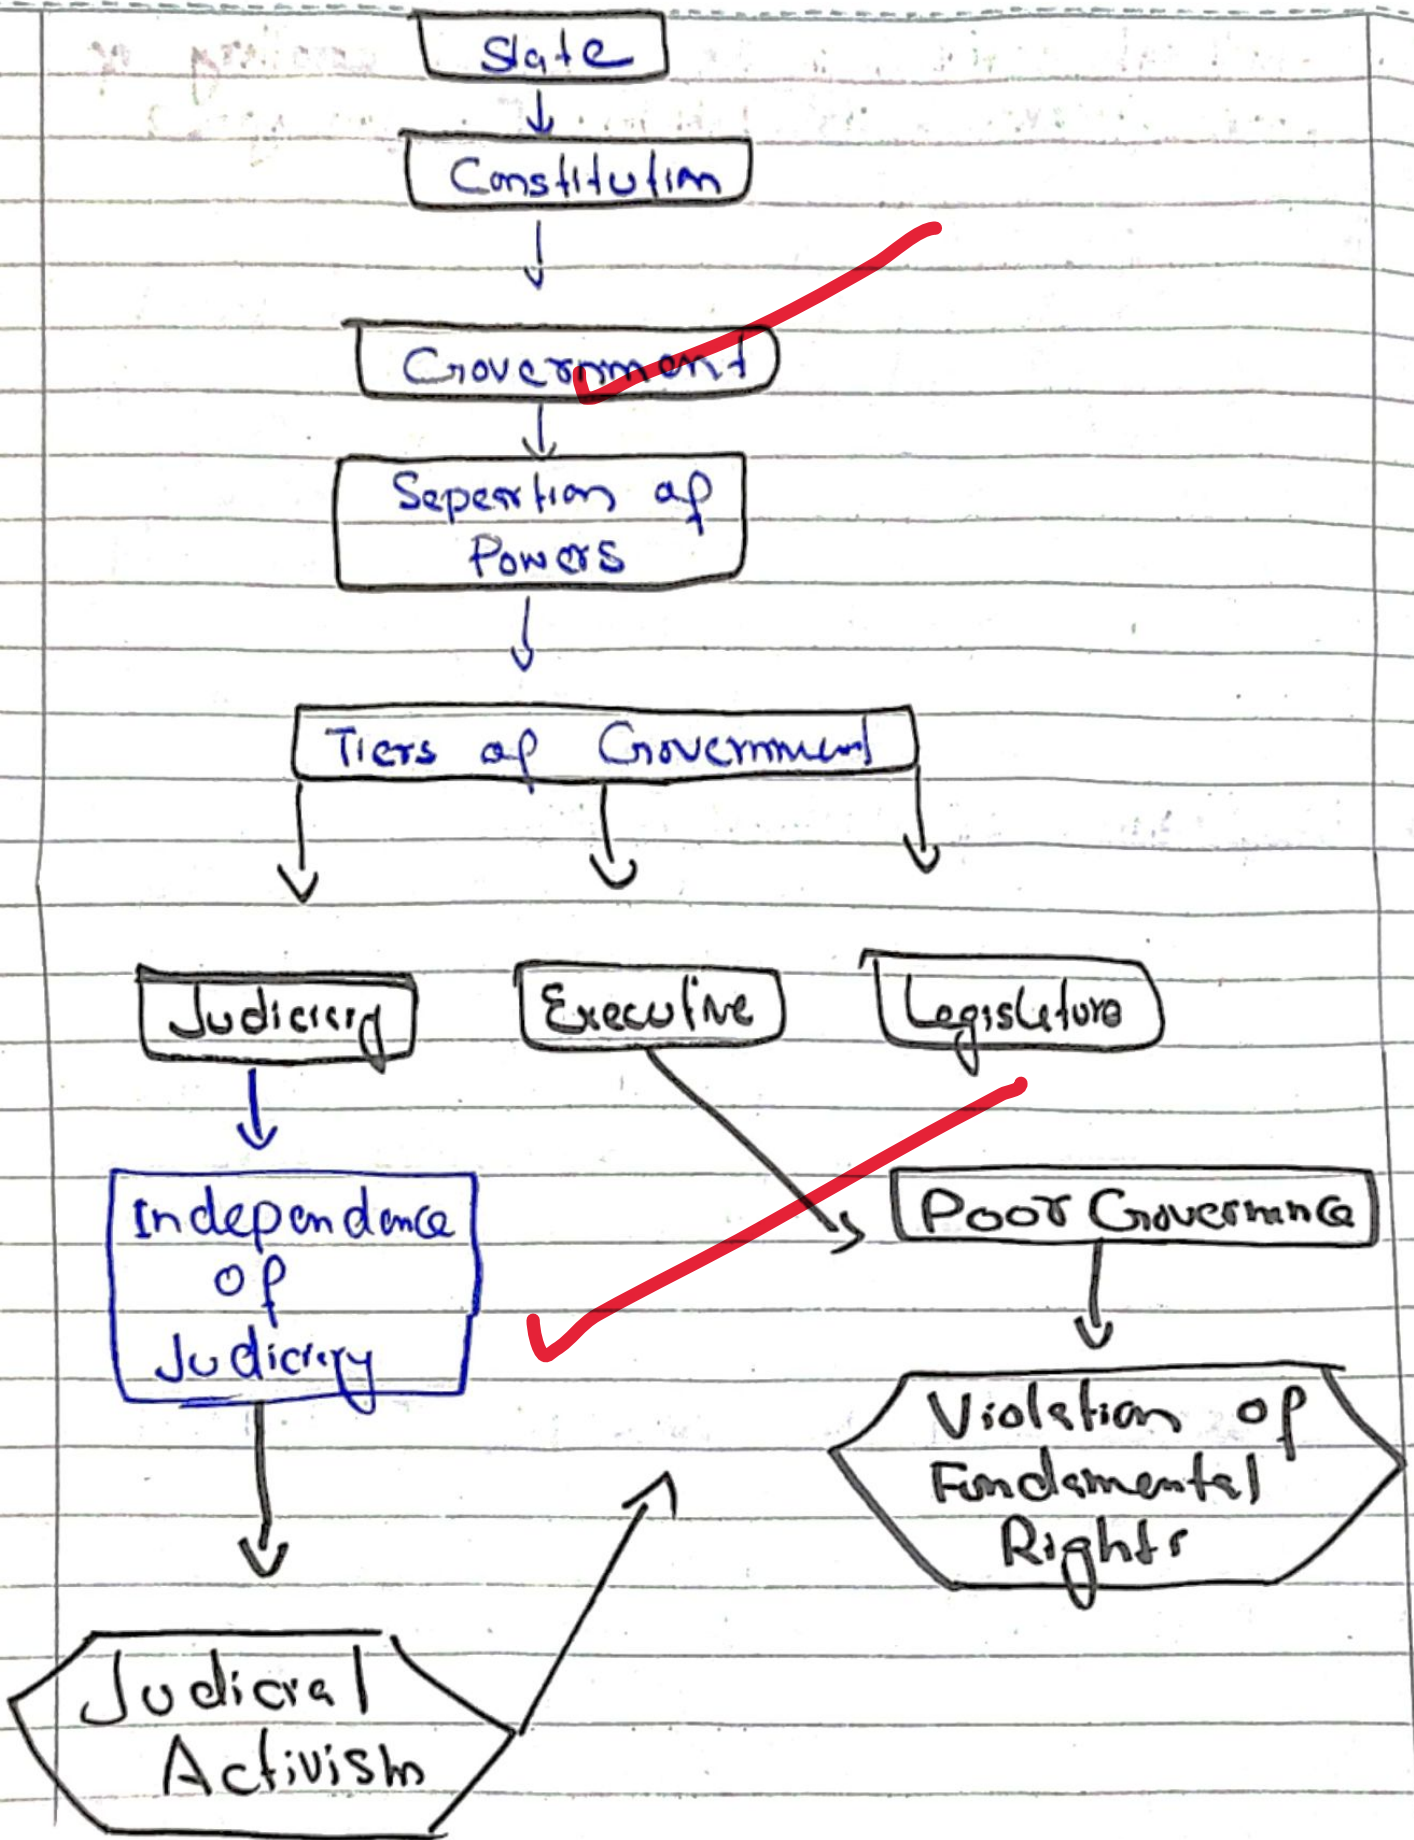 State
Constitution
Government
Sepertion of
Powers
Tiers of Government
Judiciary
Executive
Legislature
Independence
of
Judiciary
Poor Governance
Violation of
Fundamental
Rights
Judicial
Activism